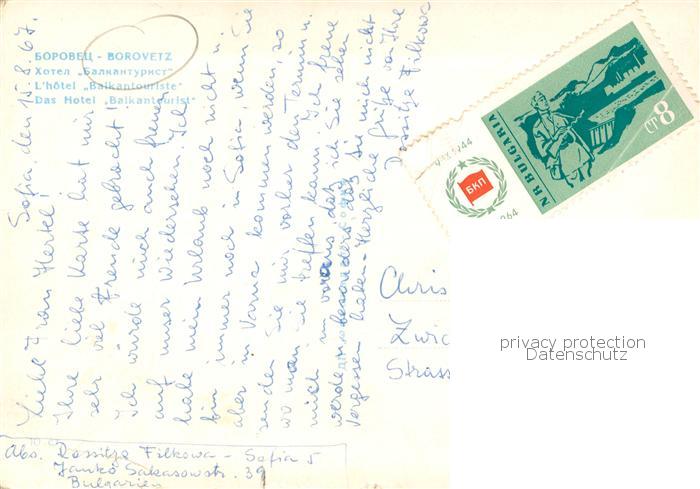 БОРОВЕЦ - BOROVETZ
Хотел „Балкантурист"
L'hôtel „Balkantouriste"
Das Hotel „Balkantourist"
Sofia den 15.8.67.
Liebe Frau Hertel!
Ihre liebe Karte hat mir
sehr viel Freude gebracht!
Ich würde mich auch freuen
auf unser Wiedersehen. Ich
habe mein Urlaub noch nicht u.
bin immer noch in Sofia, wenn sie
aber in Varna kommen werden, so
senden Sie mir vorher den Termin u.
wo man sie treffen kann. Ich freue
mich im voraus, daß ich Sie sehen
werde, besonders daß Sie mich nicht
vergessen haben. Herzliche Grüße von Ihre
Rossitze Filkowa
Abs. Rossitze Filkowa - Sofia 5
Janko Sakasowstr. 39
Bulgarien
NR BULGARIA
СТ 8
1944
БКП
1964
Chris
Zwic
Strass
privacy protection
Datenschutz